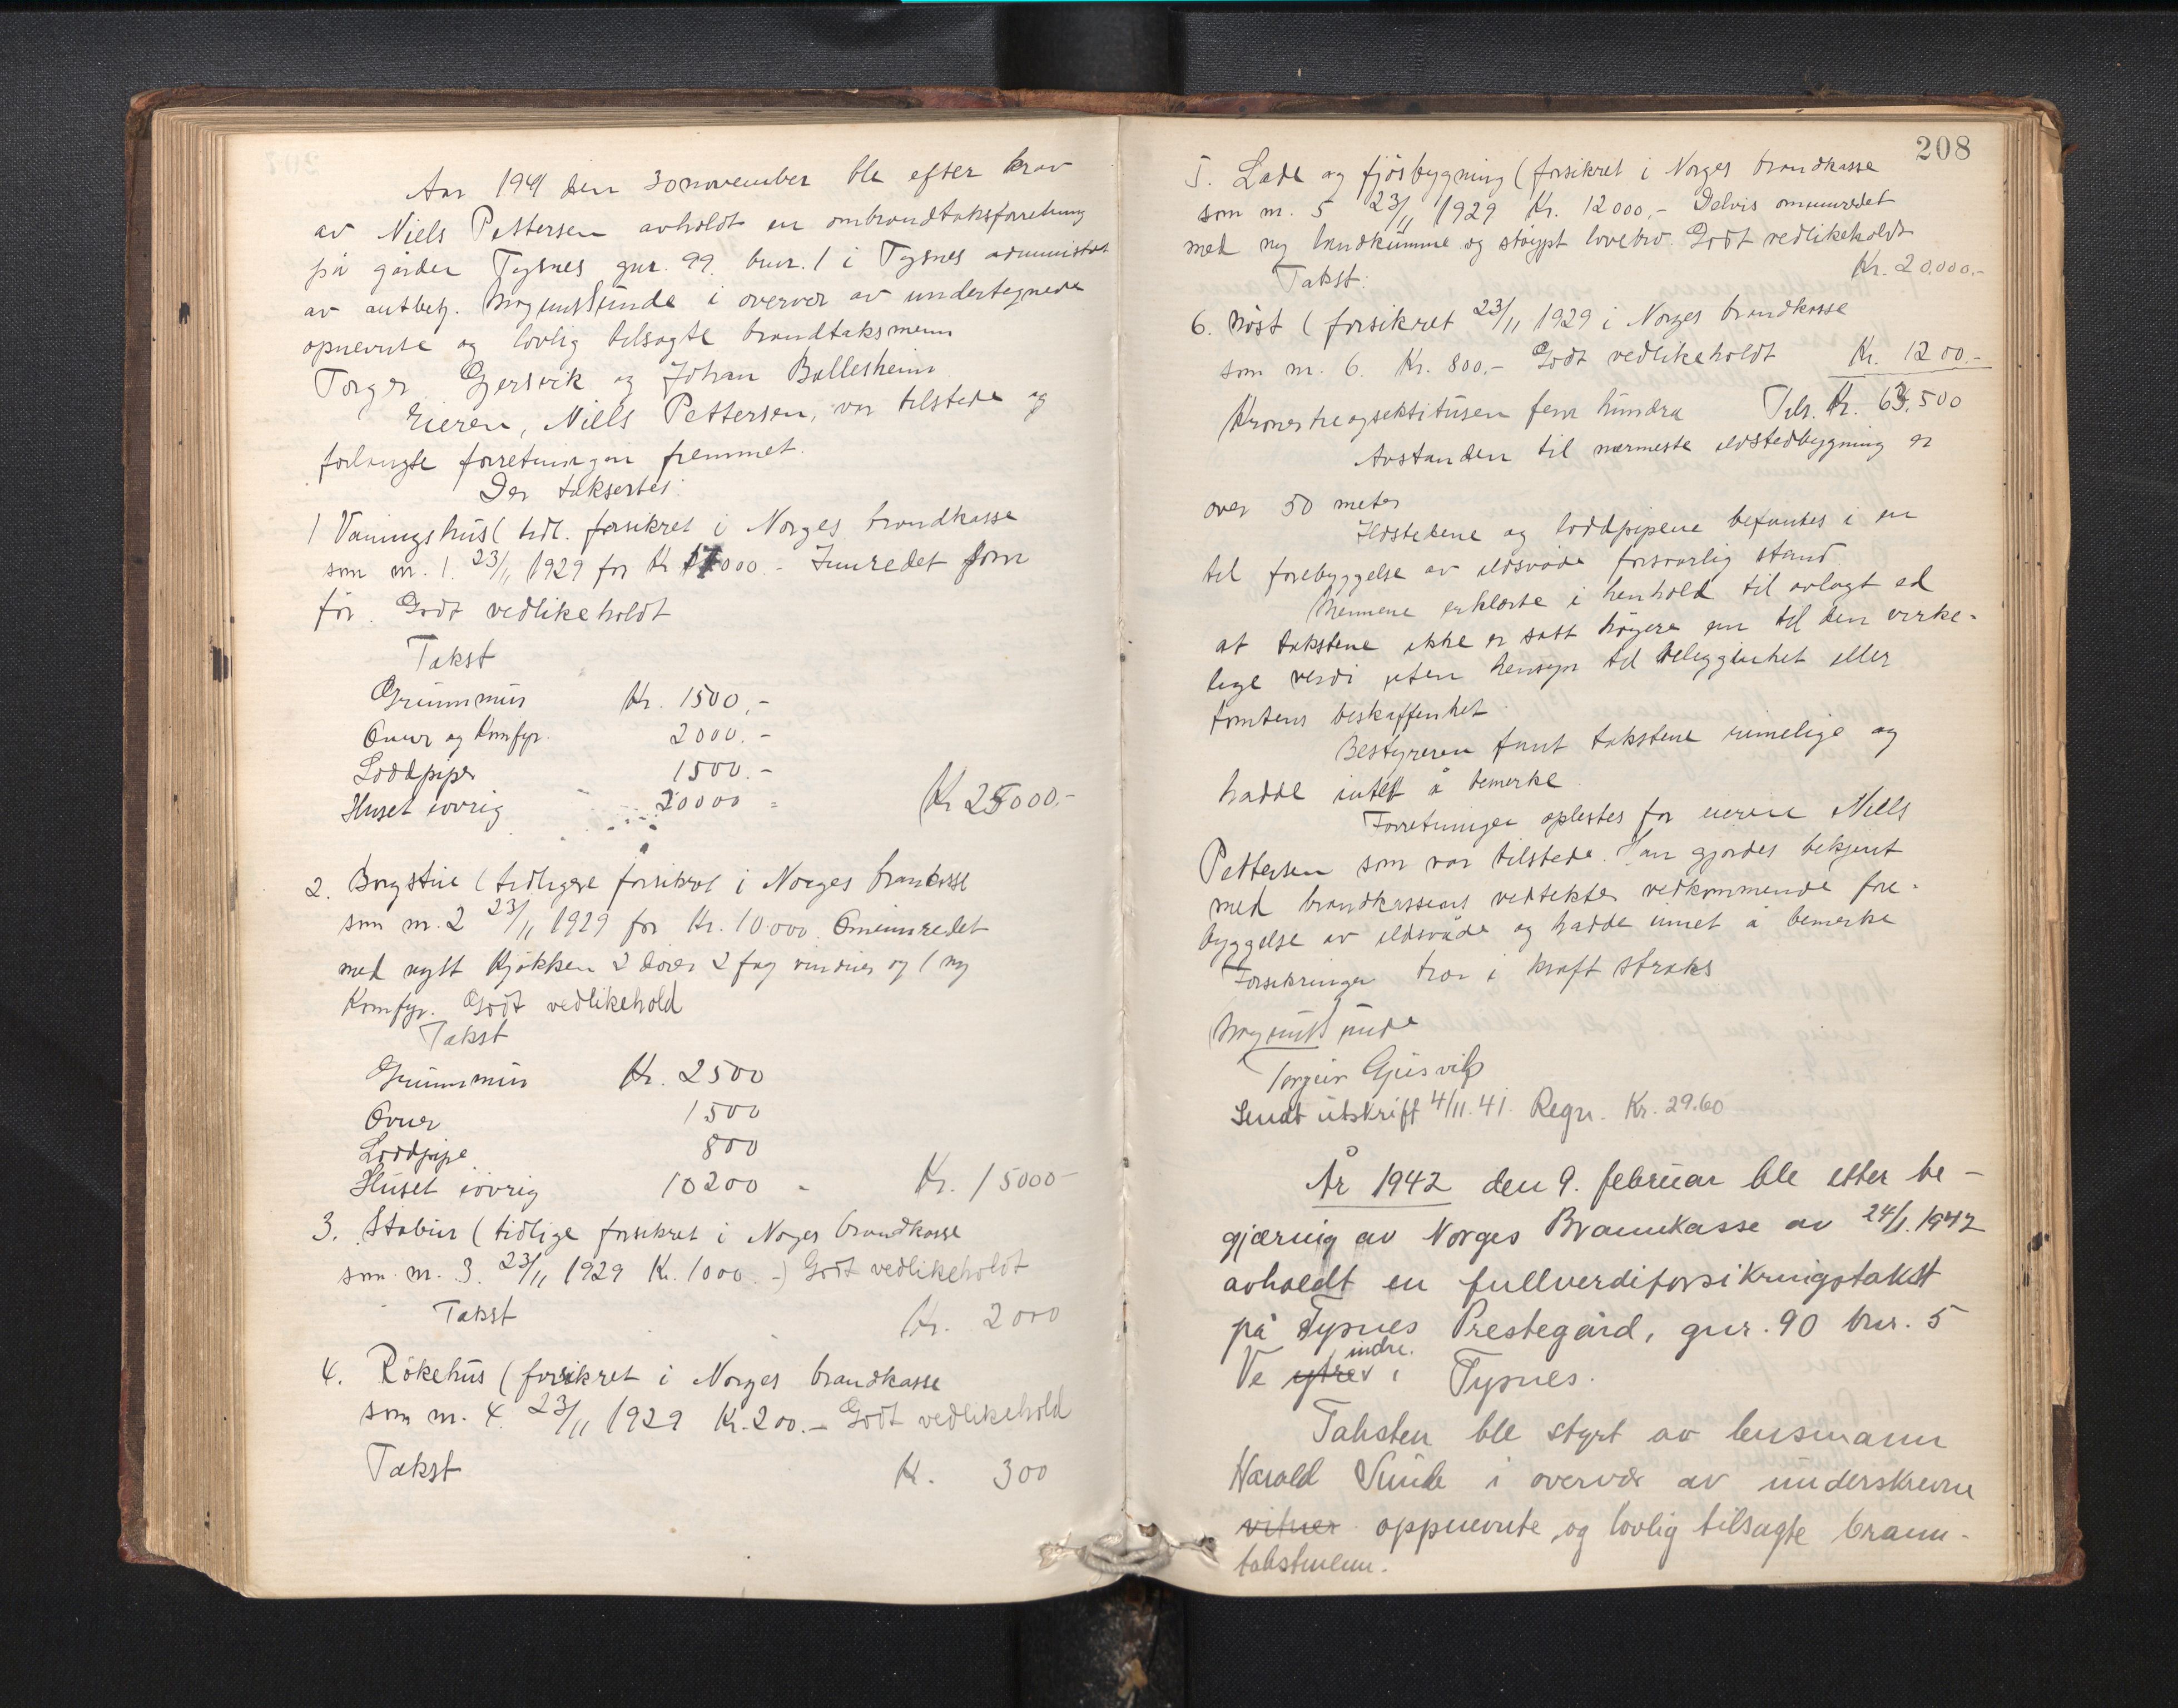 Aar 1941 den 30 november ble efter krav
av Niels Pettersen avholdt en ombrandtaksforretning
på gården Tysnes gnr. 99 bnr. 1 i Tysnes administret
av autbetj. Magnus Sunde i overvær av undertegnede
opnevnte og lovlig tilsagte brandtaksmenn
Torger Gjersvik og Johan Ballesheim
Eieren, Niels Pettersen, var tilstede og
forlangte forretningen fremmet.
Der taksertes:
1 Vaningshus ( tidl. forsikret i Norges brandkasse
som nr. 1. 23/11 1929 for Kr 17000.- Innredet som
før. Godt vedlikeholdt
Takst
Grunnmur Kr. 1500,-
Ovner og Komfyr. 2000.-
Loddpiper 1500.-
Huset iøvrig 20000 = Kr 25000.-
2. Borgstue ( tidligere forsikret i Norges brankasse
som nr. 2 23/11 1929 for Kr. 10.000. Ominnredet
med nytt Kjøkken 2 dører 2 fag vinduer og 1 ny
Komfyr. Godt vedlikehold
Takst
Grunnmur Kr. 2500
Ovner 1500
Loddpipe 800
Huset iøvrig 10200 - Kr. 15000-
3. Stabur ( tidlige forsikret i Noges brandkasse
som nr. 3. 23/11 1929 Kr. 1000.-) Godt vedlikeholdt
Takst Kr. 2000
4. Røkehus ( forsikret i Norges brandkasse
som nr. 4. 23/11 1929 Kr. 200.- Godt vedlikehold
Takst Kr. 300
208
5. Lade og fjøsbygning ( forsikret i Norges brandkasse
som nr. 5 23/11 1929 Kr. 12000,- Delvis ominnredet
med ny landkumme og støypt lovebro. Godt vedlikeholdt
Takst: Kr. 20.000.-
6. Nøst ( forsikret 23/11 1929 i Norges brandkasse
som nr. 6. Kr. 800.- Godt vedlikeholdt Kr. 1200.-
Kroner treogsekstitusen fem hundra Tils. Kr. 63.500
Avstanden til nærmeste ildstedbygning er
over 50 meter
Ildstedene og loddpipene befantes i en
til forebyggelse av ildsvåde forsvarlig stand
Mennene erklærte i henhold til avlagt ed
at takstene ikke er satt høyere enn til den virke-
lige verdi uten hensyn til beliggenhet eller
tomtens beskaffenhet.
Bestyreren fant takstene rimelige og
hadde intet å bemerke.
Forretningen oplestes for eieren Niels
Pettersen som var tilstede. Han gjordes bekjent
med brandkassens vedtekter vedkommende fore-
byggelse av ildsvåde og hadde intet å bemerke
Forsikringen trær i kraft straks
Magnus Sunde
Torgeir Gjersvik
Sendt utskrift 4/11. 41. Regn. Kr. 29.60
År 1942 den 9. februar ble etter be-
gjæring av Norges Brannkasse av 24/1. 1942
avholdt en fullverdiforsikringstakst
på Tysnes Prestegård, gnr. 90 bnr. 5
Ve ytre indre. i Tysnes.
Taksten ble styrt av lensmann
Harald Sunde i overvær av underskrevne
vitner oppnevnte og lovlig tilsagte brann-
takstmenn.